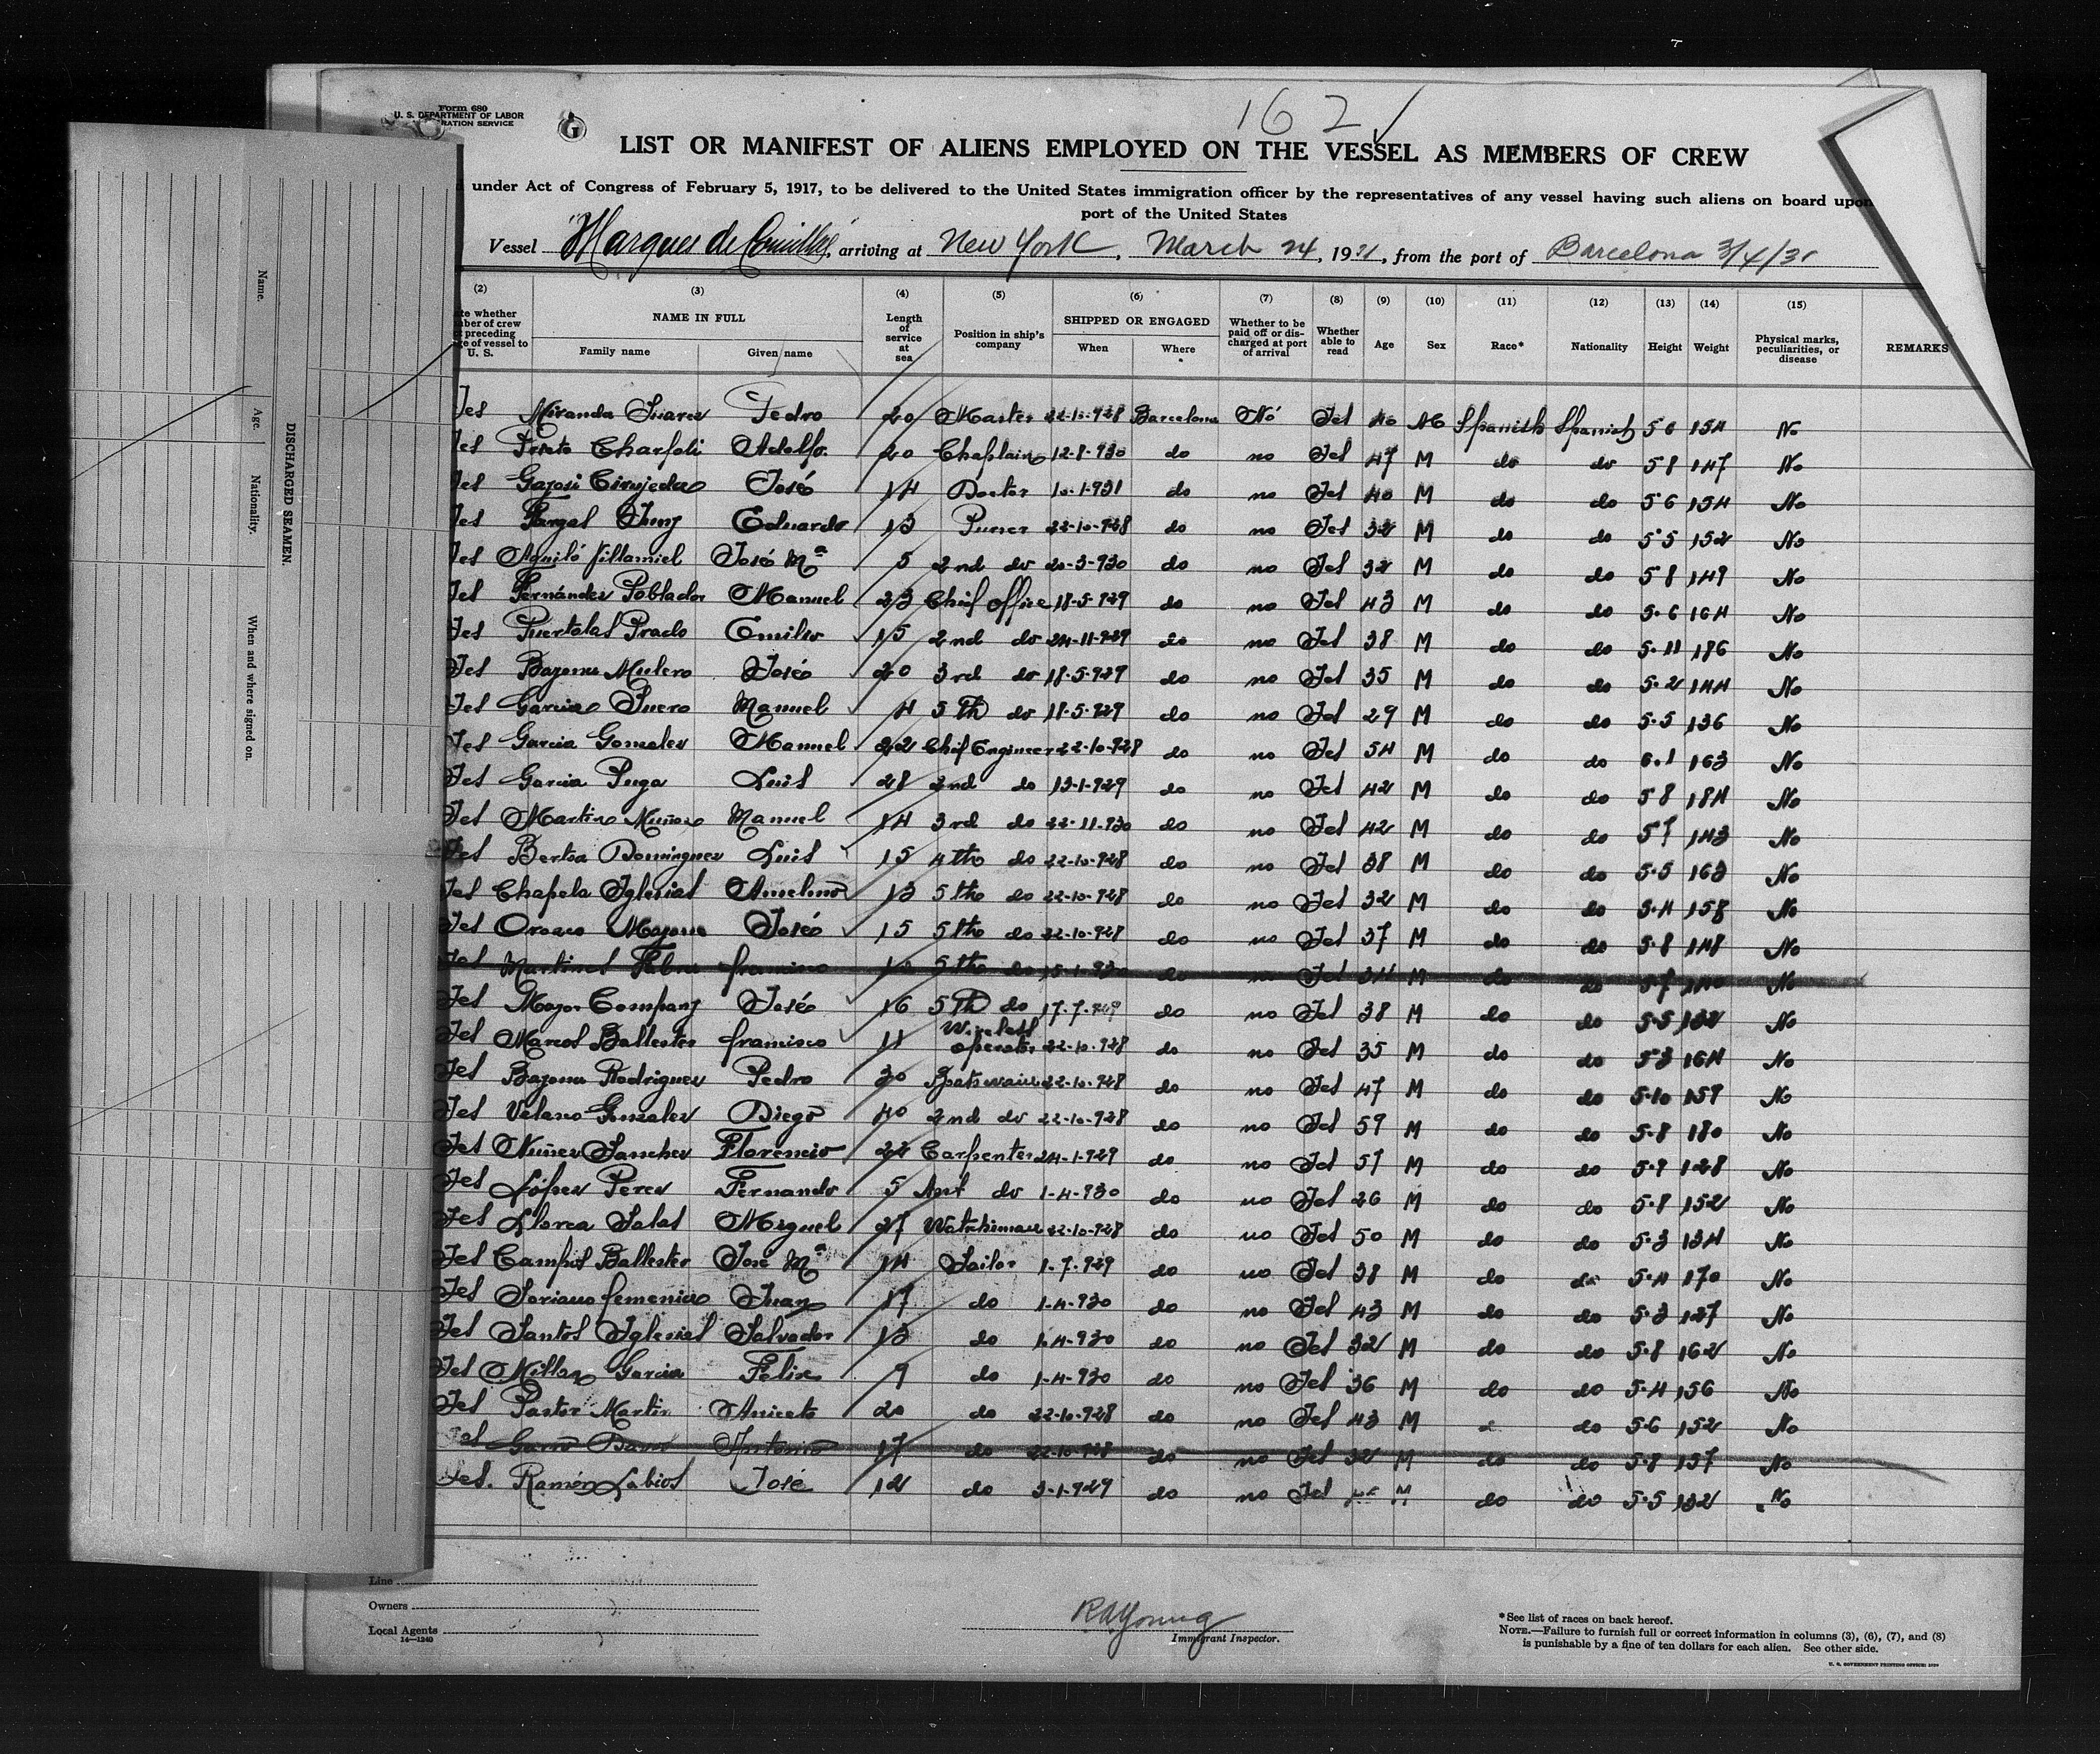 Form 680
U. S. DEPARTMENT OF LABOR
RATION SERVICE
G
162 ✓
LIST OR MANIFEST OF ALIENS EMPLOYED ON THE VESSEL AS MEMBERS OF CREW
under Act of Congress of February 5, 1917, to be delivered to the United States immigration officer by the representatives of any vessel having such aliens on board upon
port of the United States
Vessel "Marques de Comillas", arriving at New York, March 24, 1931, from the port of Barcelona 3/4/31
(2) (3) (4) (5) (6) (7) (8) (9) (10) (11) (12) (13) (14) (15)
te whether
ber of crew
preceding
ge of vessel to
U. S.
NAME IN FULL
Family name Given name
Length
of
service
at
sea
Position in ship's
company
SHIPPED OR ENGAGED
When Where
Whether to be
paid off or dis-
charged at port
of arrival
Whether
able to
read
Age
Sex
Race*
Nationality
Height
Weight
Physical marks,
peculiarities, or
disease
REMARKS
Yes Miranda Suarez Pedro 20 Master 22-10-928 Barcelona No Yes 40 M Spanish Spanish 5 6 154 No
Yes Prieto Adolfo 20 Chaplain 12-8-930 do no Yes 47 M do do 5 8 147 No
Yes Cirujeda José 14 Doctor 10-1-931 do no Yes 40 M do do 5 6 154 No
Yes Eduardo 13 Purser 22-10-928 do no Yes 32 M do do 5 5 152 No
Yes Aguiló Villamiel José Mª 5 2nd do 20-3-930 do no Yes 32 M do do 5 8 149 No
Yes Fernández Poblador Manuel 23 Chief office 18-5-929 do no Yes 43 M do do 5.6 164 No
Yes Puertolas Prado Emilio 15 2nd do 24-11-929 do no Yes 38 M do do 5.11 186 No
Yes Bazona Mulero José 20 3rd do 18-5-929 do no Yes 35 M do do 5.2 144 No
Yes Garcia Suero Manuel 4 5th do 18-5-929 do no Yes 29 M do do 5.5 136 No
Yes Garcia Gonzalez Manuel 22 Chief Engineer 22-10-928 do no Yes 54 M do do 6.1 163 No
Yes Garcia Puga Luis 28 2nd do 13-1-929 do no Yes 42 M do do 5 8 184 No
Yes Martinez Muñoz Manuel 14 3rd do 22-11-930 do no Yes 42 M do do 5 7 143 No
Yes Bertoa Dominguez Luis 15 4th do 22-10-928 do no Yes 38 M do do 5.5 163 No
Yes Chapela Iglesias Anselmo 13 5th do 22-10-928 do no Yes 32 M do do 5.4 158 No
Yes Orozco José 15 5th do 22-10-928 do no Yes 37 M do do 5.8 148 No
Yes Martinez Fabra francisco 10 5th do do no Yes 34 M do do 5.7 140 No
Yes Mayor Company José 16 5th do 17-7-929 do no Yes 38 M do do 5.5 132 No
Yes Marcos Ballester francisco 11 Wireless operator 22-10-928 do no Yes 35 M do do 5 3 164 No
Yes Bazona Rodriguez Pedro 30 Boatswain 22-10-928 do no Yes 47 M do do 5.10 159 No
Yes Velano Gonzalez Diego 40 2nd do 22-10-928 do no Yes 59 M do do 5.8 180 No
Yes Nuñez Sanchez Florencio 22 Carpenter 24-1-929 do no Yes 57 M do do 5.9 128 No
Yes López Perez Fernando 5 Asst do 1-4-930 do no Yes 26 M do do 5.8 152 No
Yes Llorca Salas Miguel 27 Watchman 22-10-928 do no Yes 50 M do do 5.3 134 No
Yes Campos Ballester José Mª 14 Sailor 1-7-929 do no Yes 38 M do do 5.4 170 No
Yes Soriano femenia Juan 17 do 1-4-930 do no Yes 43 M do do 5.3 127 No
Yes Santos Iglesias Salvador 13 do 1-4-930 do no Yes 32 M do do 5.8 162 No
Yes Millan Garcia Felix 9 do 1-4-930 do no Yes 36 M do do 5.4 156 No
Yes Pastor Martin Aniceto 20 do 22-10-928 do no Yes 43 M do 5.6 152 No
Yes Antonio 17 do 22-10-928 do no Yes 32 M do do 5.8 157 No
Yes. Ramón Labios José 12 do 3-1-929 do no Yes M do do 5.5 132 No
DISCHARGED SEAMEN.
Name. Age. Nationality. When and where signed on.
Line
Owners
Local Agents
14—1240
RAYoung
Immigrant Inspector.
*See list of races on back hereof.
NOTE.—Failure to furnish full or correct information in columns (3), (6), (7), and (8)
is punishable by a fine of ten dollars for each alien. See other side.
U. S. GOVERNMENT PRINTING OFFICE: 1929